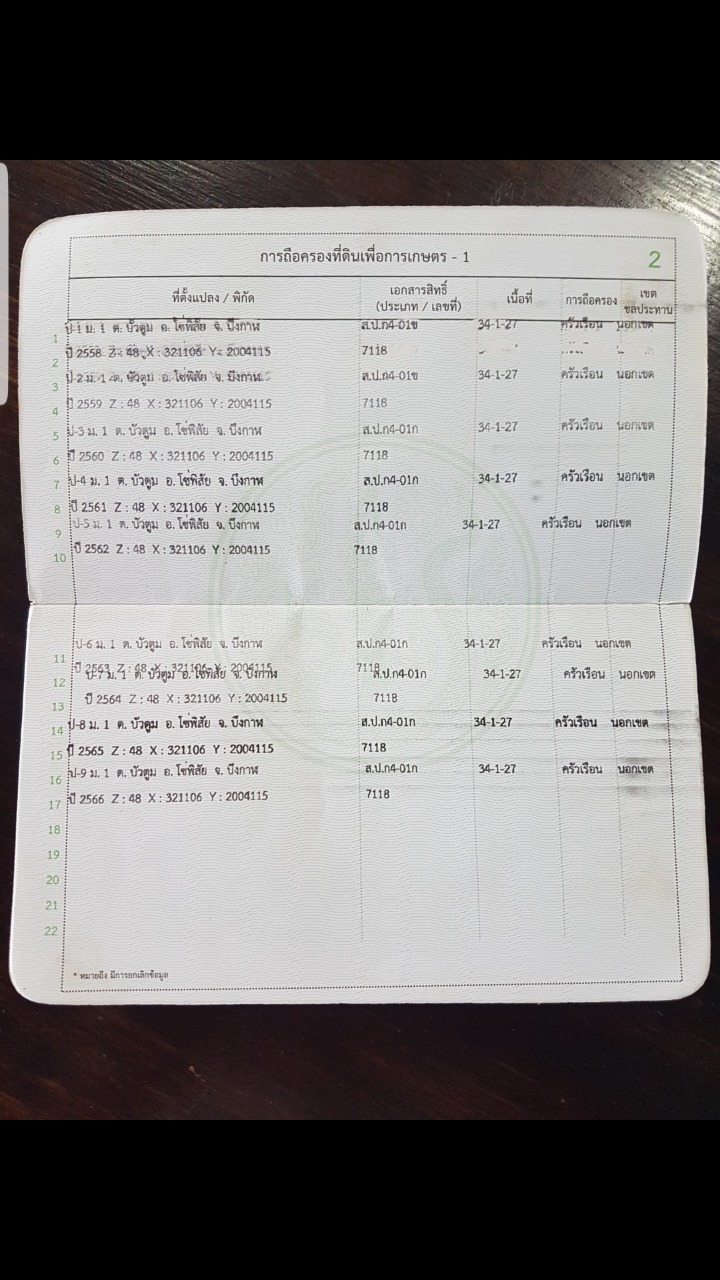 การถือครองที่ดินเพื่อการเกษตร - 1 2
ที่ตั้งแปลง / พิกัด เอกสารสิทธิ์ (ประเภท / เลขที่) เนื้อที่ การถือครอง เขตชลประทาน
1 ป-1 ม. 1 ต. บัวตูม อ. โซ่พิสัย จ. บึงกาฬ ส.ป.ก4-01ข 34-1-27 ครัวเรือน นอกเขต
2 ปี 2558 Z : 48 X : 321106 Y : 2004115 7118
3 ป-2 ม. 1 ต. บัวตูม อ. โซ่พิสัย จ. บึงกาฬ ส.ป.ก4-01ข 34-1-27 ครัวเรือน นอกเขต
4 ปี 2559 Z : 48 X : 321106 Y : 2004115 7118
5 ป-3 ม. 1 ต. บัวตูม อ. โซ่พิสัย จ. บึงกาฬ ส.ป.ก4-01ก 34-1-27 ครัวเรือน นอกเขต
6 ปี 2560 Z : 48 X : 321106 Y : 2004115 7118
7 ป-4 ม. 1 ต. บัวตูม อ. โซ่พิสัย จ. บึงกาฬ ส.ป.ก4-01ก 34-1-27 ครัวเรือน นอกเขต
8 ปี 2561 Z : 48 X : 321106 Y : 2004115 7118
9 ป-5 ม. 1 ต. บัวตูม อ. โซ่พิสัย จ. บึงกาฬ ส.ป.ก4-01ก 34-1-27 ครัวเรือน นอกเขต
10 ปี 2562 Z : 48 X : 321106 Y : 2004115 7118
ป-6 ม. 1 ต. บัวตูม อ. โซ่พิสัย จ. บึงกาฬ ส.ป.ก4-01ก 34-1-27 ครัวเรือน นอกเขต
11 ปี 2563 Z : 48 X : 321106 Y : 2004115 7118
12 ป-7 ม. 1 ต. บัวตูม อ. โซ่พิสัย จ. บึงกาฬ ส.ป.ก4-01ก 34-1-27 ครัวเรือน นอกเขต
13 ปี 2564 Z : 48 X : 321106 Y : 2004115 7118
14 ป-8 ม. 1 ต. บัวตูม อ. โซ่พิสัย จ. บึงกาฬ ส.ป.ก4-01ก 34-1-27 ครัวเรือน นอกเขต
15 ปี 2565 Z : 48 X : 321106 Y : 2004115 7118
16 ป-9 ม. 1 ต. บัวตูม อ. โซ่พิสัย จ. บึงกาฬ ส.ป.ก4-01ก 34-1-27 ครัวเรือน นอกเขต
17 ปี 2566 Z : 48 X : 321106 Y : 2004115 7118
18
19
20
21
22
* หมายถึง มีการยกเลิกข้อมูล